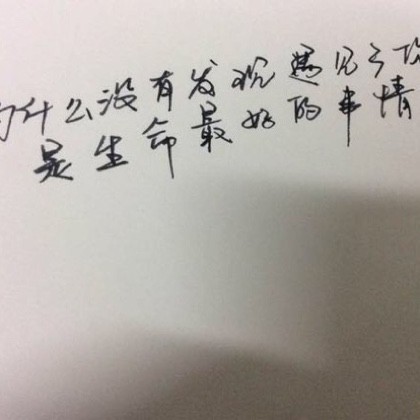 为什么没有发现遇见了你
是生命最好的事情